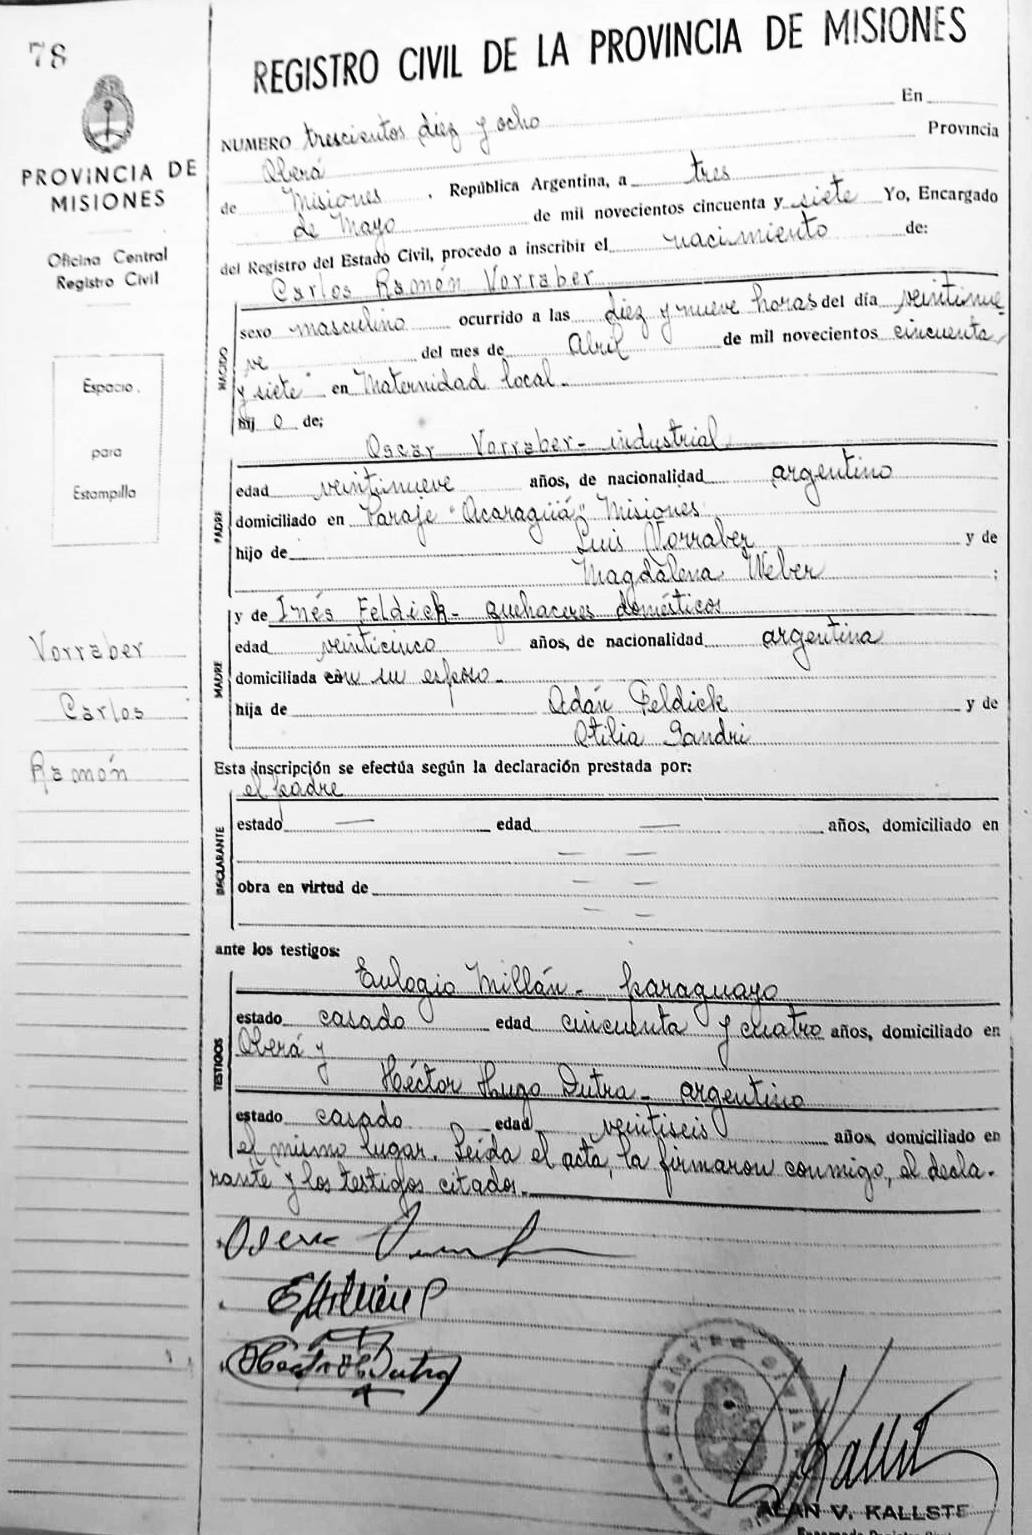 78
REGISTRO CIVIL DE LA PROVINCIA DE MISIONES
PROVINCIA DE
MISIONES
Oficina Central
Registro Civil
Espacio
para
Estampilla
Vorraber
Carlos
Ramón
NUMERO trescientos diez y ocho En
Oberá Provincia
de Misiones, República Argentina, a tres
de Mayo de mil novecientos cincuenta y siete Yo, Encargado
del Registro del Estado Civil, procedo a inscribir el nacimiento de:
Carlos Ramón Vorraber
NACIDO
sexo masculino ocurrido a las diez y nueve horas del día veintinue-
ve del mes de Abril de mil novecientos cincuenta
y siete en Maternidad local.
hij o de;
Oscar Vorraber - industrial
PADRE
edad veintinueve años, de nacionalidad argentino
domiciliado en Paraje "Acaragüá" Misiones
hijo de Luis Vorraber y de
Magdalena Weber ;
y de Inés Feldick - quehaceres domésticos
MADRE
edad veinticinco años, de nacionalidad argentina
domiciliada con su esposo.
hija de Adán Feldick y de
Otilia Gandri
Esta inscripción se efectúa según la declaración prestada por:
el padre
DECLARANTE
estado — edad — años, domiciliado en
— —
obra en virtud de — —
— —
ante los testigos:
Eulogio Millán - paraguayo
TESTIGOS
estado casado edad cincuenta y cuatro años, domiciliado en
Oberá y
Héctor Hugo Dutra - argentino
estado casado edad veintiseis años, domiciliado en
el mismo lugar. Leída el acta, la firmaron conmigo, el decla-
rante y los testigos citados.
ALAN V. KALLSTE